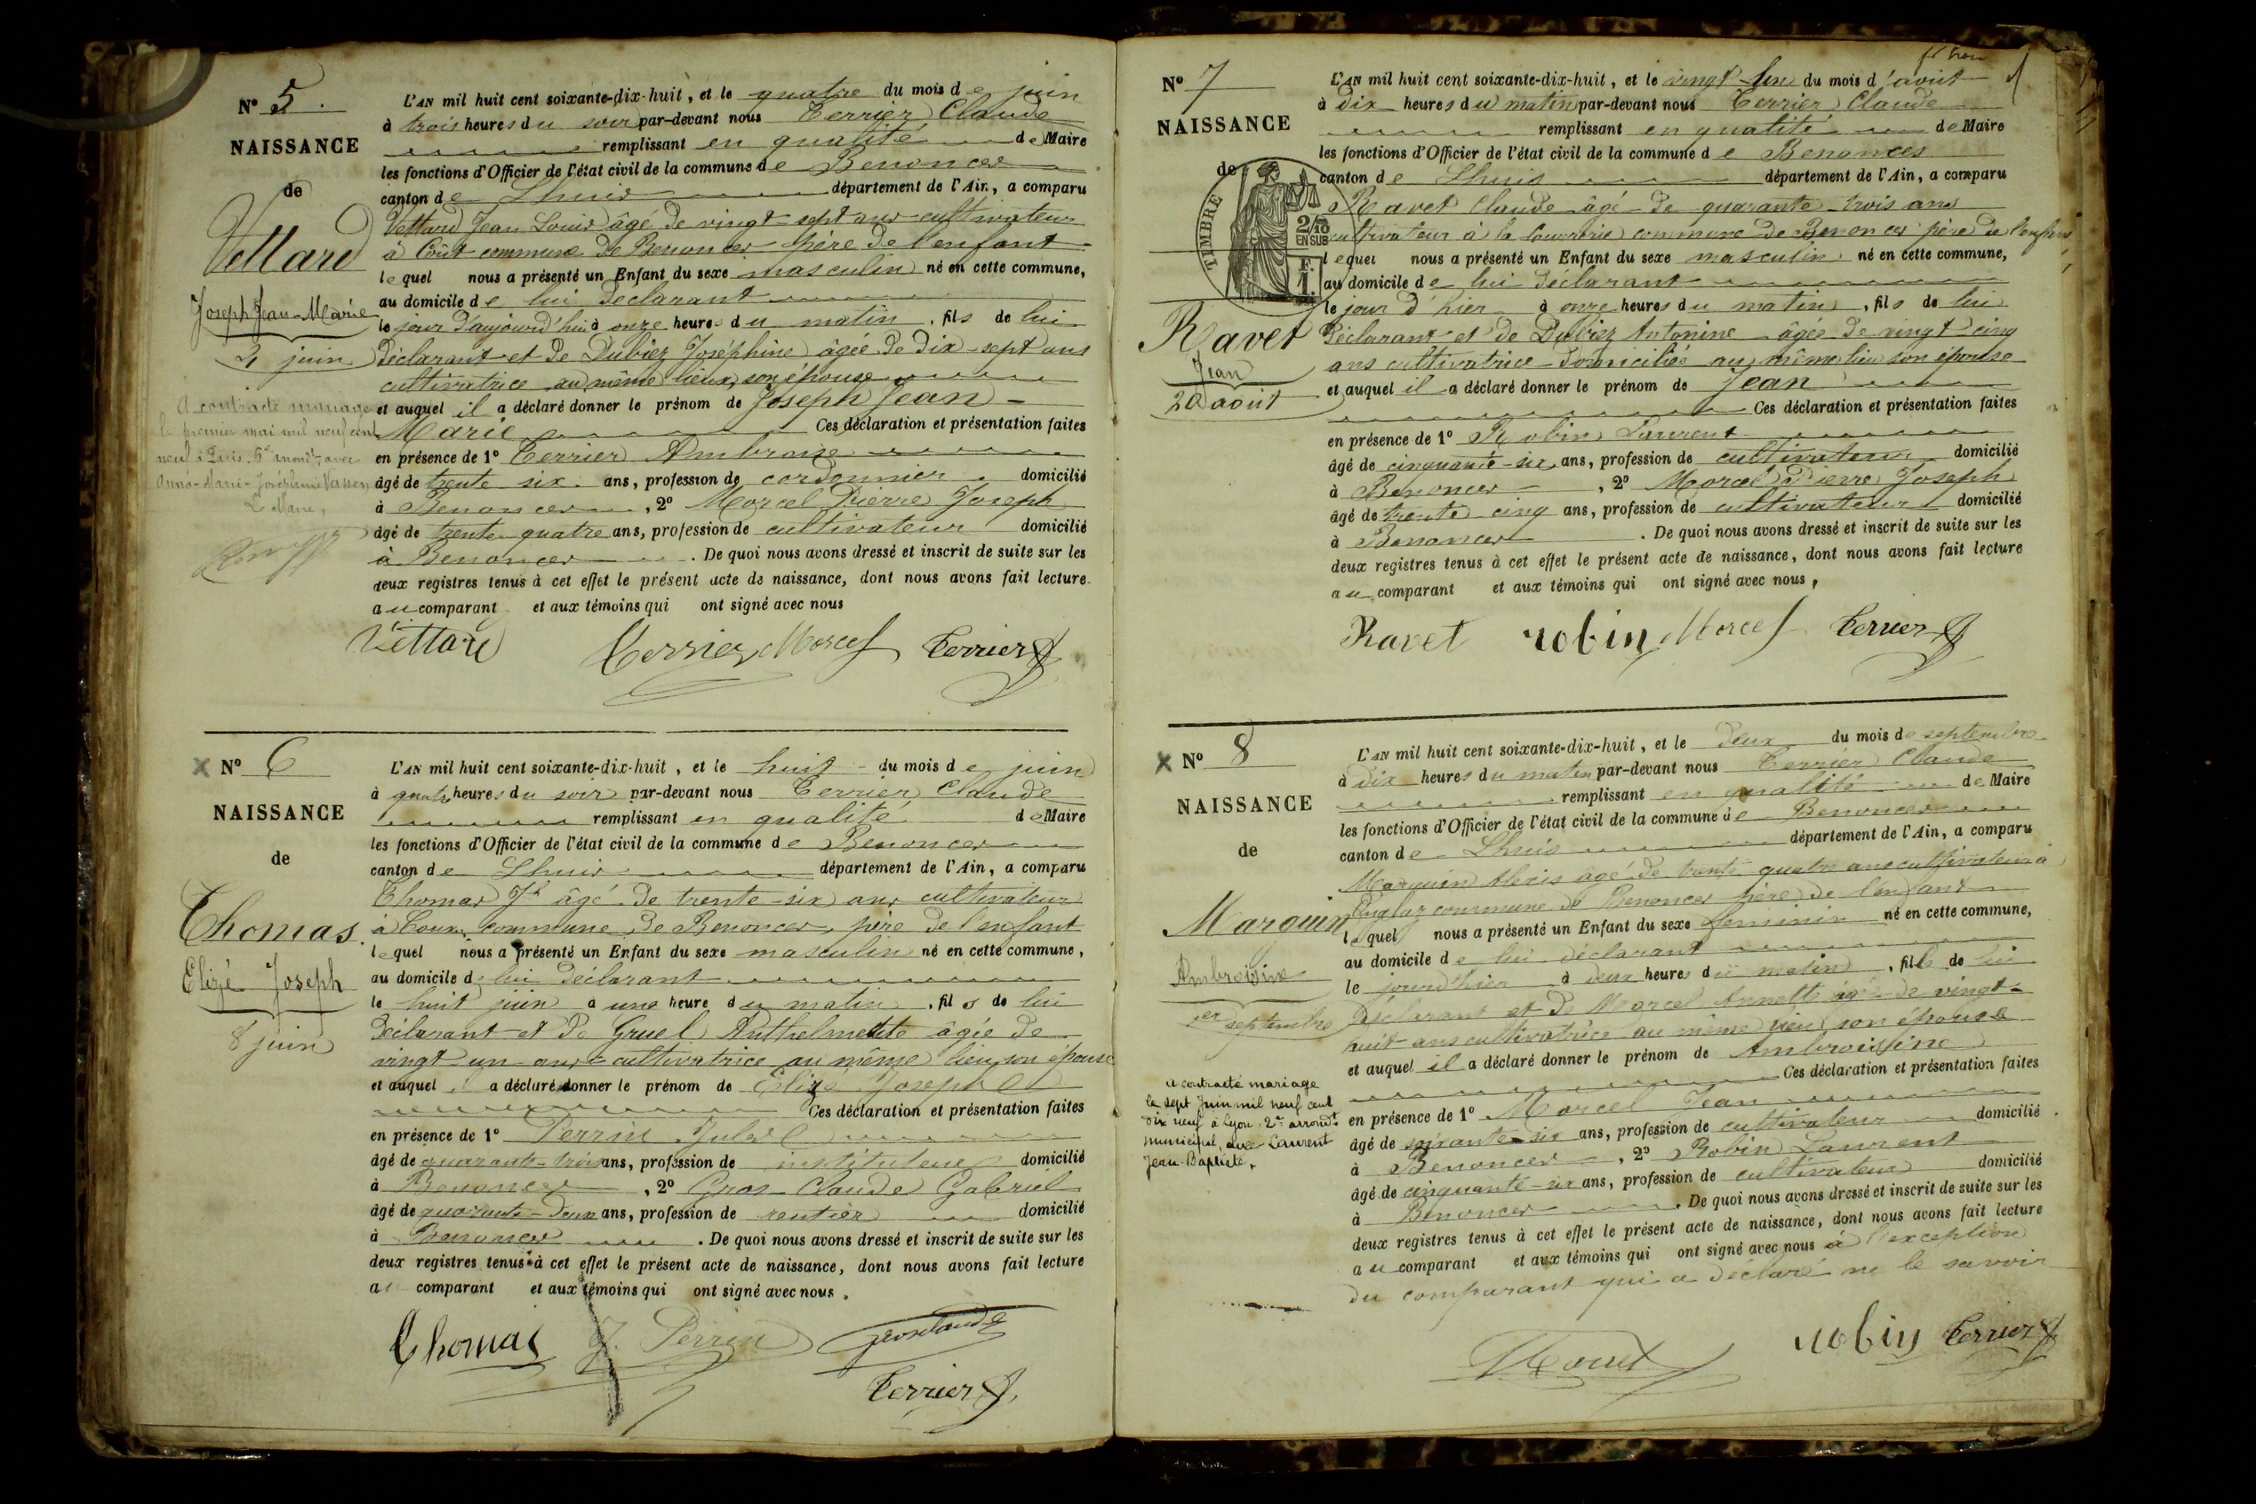 Nº 5.
NAISSANCE
de
Vettard
Joseph Jean-Marie
4 juin
A contracté mariage
le premier mai mil neuf cent
neuf à Paris 6e arrondt avec
Anna-Marie-Joséphine
Le Maire,
L'AN mil huit cent soixante-dix-huit, et le quatre du mois de juin
à trois heures du soir par-devant nous Terrier Claude
remplissant en qualité de Maire
les fonctions d'Officier de l'état civil de la commune de Benonces
canton de Lhuis département de l'Ain, a comparu
Vettard Jean Louis âgé de vingt-sept ans cultivateur
à Coût commune de Benonces père de l'enfant
lequel nous a présenté un Enfant du sexe masculin né en cette commune,
au domicile de lui déclarant
le jour d'aujourd'hui à onze heures du matin, fils de lui
déclarant et de Dubiez Joséphine âgée de dix-sept ans
cultivatrice au même lieux, son épouse
et auquel il a déclaré donner le prénom de Joseph Jean-
Marie Ces déclaration et présentation faites
en présence de 1º Terrier Ambroise
âgé de trente six ans, profession de cordonnier domicilié
à Benonces, 2º Morcel Pierre Joseph
âgé de trente quatre ans, profession de cultivateur domicilié
à Benonces. De quoi nous avons dressé et inscrit de suite sur les
deux registres tenus à cet effet le présent acte de naissance, dont nous avons fait lecture
au comparant et aux témoins qui ont signé avec nous
Vettard Terrier Morcel Terrier
Nº 6
NAISSANCE
de
Thomas
Elizé Joseph
8 juin
L'AN mil huit cent soixante-dix-huit, et le huit du mois de juin
à quatre heures du soir par-devant nous Terrier Claude
remplissant en qualité de Maire
les fonctions d'Officier de l'état civil de la commune de Benonces
canton de Lhuis département de l'Ain, a comparu
Thomas Jh âgé de trente-six ans cultivateur
à Cour commune de Benonces, père de l'enfant
lequel nous a présenté un Enfant du sexe masculin né en cette commune,
au domicile de lui déclarant
le huit juin à une heure du matin, fils de lui
déclarant et de Gruel Anthelmette âgée de
vingt un ans cultivatrice au même lieu, son épouse
et auquel il a déclaré donner le prénom de Elizé Joseph
Ces déclaration et présentation faites
en présence de 1º Perrin Jules
âgé de quarante-trois ans, profession de instituteur domicilié
à Benonces, 2º Gros Claude Gabriel
âgé de quarante-deux ans, profession de rentier domicilié
à Benonces. De quoi nous avons dressé et inscrit de suite sur les
deux registres tenus à cet effet le présent acte de naissance, dont nous avons fait lecture
au comparant et aux témoins qui ont signé avec nous.
Thomas J. Perrin Gros Claude
Terrier
Nº 7
NAISSANCE
de
TIMBRE
2/10
EN SUS
F.
1.
Ravet
Jean
20 août
L'AN mil huit cent soixante-dix-huit, et le vingt-un du mois d'août
à dix heures du matin par-devant nous Terrier Claude
remplissant en qualité de Maire
les fonctions d'Officier de l'état civil de la commune de Benonces
canton de Lhuis département de l'Ain, a comparu
Ravet Claude âgé de quarante-trois ans
cultivateur à la commune de Benonces père de l'enfant
lequel nous a présenté un Enfant du sexe masculin né en cette commune,
au domicile de lui déclarant
le jour d'hier à onze heures du matin, fils de lui
déclarant et de Dubiez Antonine âgée de vingt cinq
ans cultivatrice domiciliée au même lieu son épouse
et auquel il a déclaré donner le prénom de Jean
Ces déclaration et présentation faites
en présence de 1º Robin Laurent
âgé de cinquante-six ans, profession de cultivateur domicilié
à Benonces, 2º Morcel Pierre Joseph
âgé de trente cinq ans, profession de cultivateur domicilié
à Benonces. De quoi nous avons dressé et inscrit de suite sur les
deux registres tenus à cet effet le présent acte de naissance, dont nous avons fait lecture
au comparant et aux témoins qui ont signé avec nous,
Ravet robin Morcel Terrier
Nº 8
NAISSANCE
de
Marguin
Ambroisine
1er septembre
a contracté mariage
le sept Juin mil neuf cent
dix neuf à Lyon 2e arrondt
municipal, avec Laurent
Jean-Baptiste,
L'AN mil huit cent soixante-dix-huit, et le deux du mois de septembre
à dix heures du matin par-devant nous Terrier Claude
remplissant en qualité de Maire
les fonctions d'Officier de l'état civil de la commune de Benonces
canton de Lhuis département de l'Ain, a comparu
Marguin Alexis âgé de trente quatre ans cultivateur à
commune de Benonces père de l'enfant
lequel nous a présenté un Enfant du sexe féminin né en cette commune,
au domicile de lui déclarant
le jour d'hier à deux heures du matin, fille de lui
déclarant et de Morcel Annette âgée de vingt-
huit ans cultivatrice au même lieu, son épouse
et auquel il a déclaré donner le prénom de Ambroisine
Ces déclaration et présentation faites
en présence de 1º Morcel Jean
âgé de soixante-six ans, profession de cultivateur domicilié
à Benonces, 2º Robin Laurent
âgé de cinquante-six ans, profession de cultivateur domicilié
à Benonces. De quoi nous avons dressé et inscrit de suite sur les
deux registres tenus à cet effet le présent acte de naissance, dont nous avons fait lecture
au comparant et aux témoins qui ont signé avec nous à l'exception
du comparant qui a déclaré ne le savoir
Morcel robin Terrier